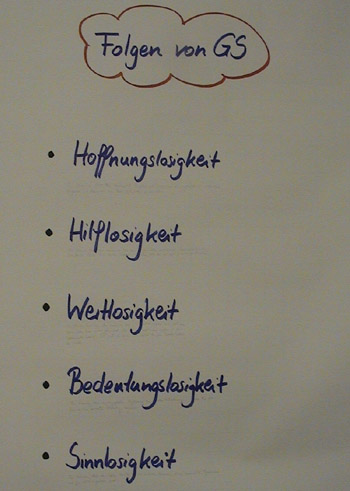 Folgen von GS
• Hoffnungslosigkeit
• Hilflosigkeit
• Wertlosigkeit
• Bedeutungslosigkeit
• Sinnlosigkeit